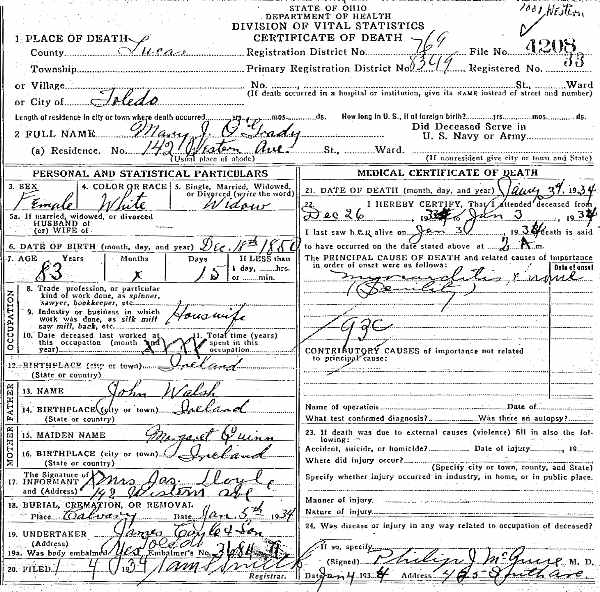 STATE OF OHIO
DEPARTMENT OF HEALTH
DIVISION OF VITAL STATISTICS
CERTIFICATE OF DEATH
1001 Western
1 PLACE OF DEATH
County Lucas Registration District No. 769 File No. 4208
Township Primary Registration District No. 8349 Registered No. 33
or Village No. St., Ward
(If death occurred in a hospital or institution, give its NAME instead of street and number)
or City of Toledo
Length of residence in city or town where death occurred yrs. mos. ds. How long in U. S., if of foreign birth? yrs. mos. ds.
2 FULL NAME Mary J. O'Grady Did Deceased Serve in U. S. Navy or Army
(a) Residence. No. 142 Western Ave St., Ward.
(Usual place of abode) (If nonresident give city or town and State)
PERSONAL AND STATISTICAL PARTICULARS
3. SEX Female
4. COLOR OR RACE White
5. Single, Married, Widowed, or Divorced (write the word) Widow
5a. If married, widowed, or divorced
HUSBAND of
(or) WIFE of
6. DATE OF BIRTH (month, day, and year) Dec. 18th 1850
7. AGE Years 83 Months x Days 15 If LESS than 1 day, hrs. or min.
OCCUPATION
8. Trade, profession, or particular kind of work done, as spinner, sawyer, bookkeeper, etc.
9. Industry or business in which work was done, as silk mill saw mill, bank, etc. Housewife
10. Date deceased last worked at this occupation (month and year)
11. Total time (years) spent in this occupation
12. BIRTHPLACE (city or town) Ireland
(State or country)
FATHER
13. NAME John Walsh
14. BIRTHPLACE (city or town) Ireland
(State or country)
MOTHER
15. MAIDEN NAME Margaret Quinn
16. BIRTHPLACE (city or town) Ireland
(State or country)
17. The Signature of INFORMANT Mrs Jas.
and (Address) 142 Western ave
18. BURIAL, CREMATION, OR REMOVAL
Place Calvary Date Jan 5th 1934
19. UNDERTAKER James Coyle & Son
(Address) Toledo
19a. Was body embalmed Yes Embalmer's No. 3684
20. FILED 1 4 1934
Registrar.
MEDICAL CERTIFICATE OF DEATH
21. DATE OF DEATH (month, day, and year) 1934
22. I HEREBY CERTIFY, That I attended deceased from
Dec 26 to Jan 3 1934
I last saw her alive on Jan 3 1934 death is said
to have occurred on the date stated above at 2 A m.
The PRINCIPAL CAUSE OF DEATH and related causes of importance in order of onset were as follows:
Date of onset
Myocarditis
(Senility)
93c
CONTRIBUTORY CAUSES of importance not related to principal cause:
Name of operation Date of
What test confirmed diagnosis? Was there an autopsy?
23. If death was due to external causes (violence) fill in also the following:
Accident, suicide, or homicide? Date of injury , 19
Where did injury occur?
(Specify city or town, county, and State)
Specify whether injury occurred in industry, in home, or in public place.
Manner of injury
Nature of injury
24. Was disease or injury in any way related to occupation of deceased?
If so, specify
(Signed) Philip J. McGuire M. D.
Date Jan 4 1934 Address